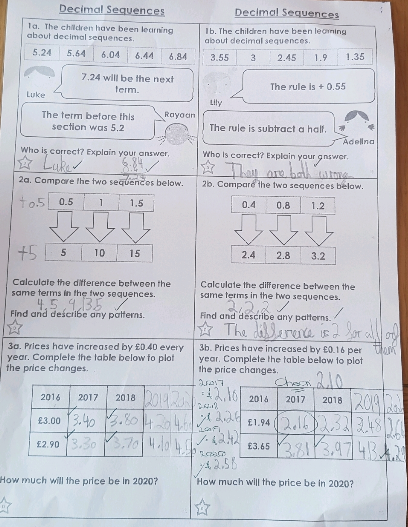 Decimal Sequences
1a. The children have been learning
about decimal sequences.
5.24 5.64 6.04 6.44 6.84
7.24 will be the next
term.
Luke
The term before this
section was 5.2
Rayaan
Who is correct? Explain your answer.
Luke
6.84
2a. Compare the two sequences below.
+0.5
0.5 1 1.5
+5
5 10 15
Calculate the difference between the
same terms in the two sequences.
4.5, 9, 13.5
Find and describe any patterns.
3a. Prices have increased by £0.40 every
year. Complete the table below to plot
the price changes.
2016 2017 2018 2019
£3.00 3.40 3.80 4.20
£2.90 3.30 3.70 4.10
How much will the price be in 2020?
Decimal Sequences
1b. The children have been learning
about decimal sequences.
3.55 3 2.45 1.9 1.35
The rule is + 0.55
Lily
The rule is subtract a half.
Adelina
Who is correct? Explain your answer.
They are both wrong
2b. Compare the two sequences below.
0.4 0.8 1.2
2.4 2.8 3.2
Calculate the difference between the
same terms in the two sequences.
2, 2, 2
Find and describe any patterns.
The difference is 2 for all of
them
3b. Prices have increased by £0.16 per
year. Complete the table below to plot
the price changes.
2.10
2016 2017 2018 2019
£1.94 2.16 2.32 2.48
£3.65 3.81 3.97 4.13
2.26
2.42
2.58
How much will the price be in 2020?